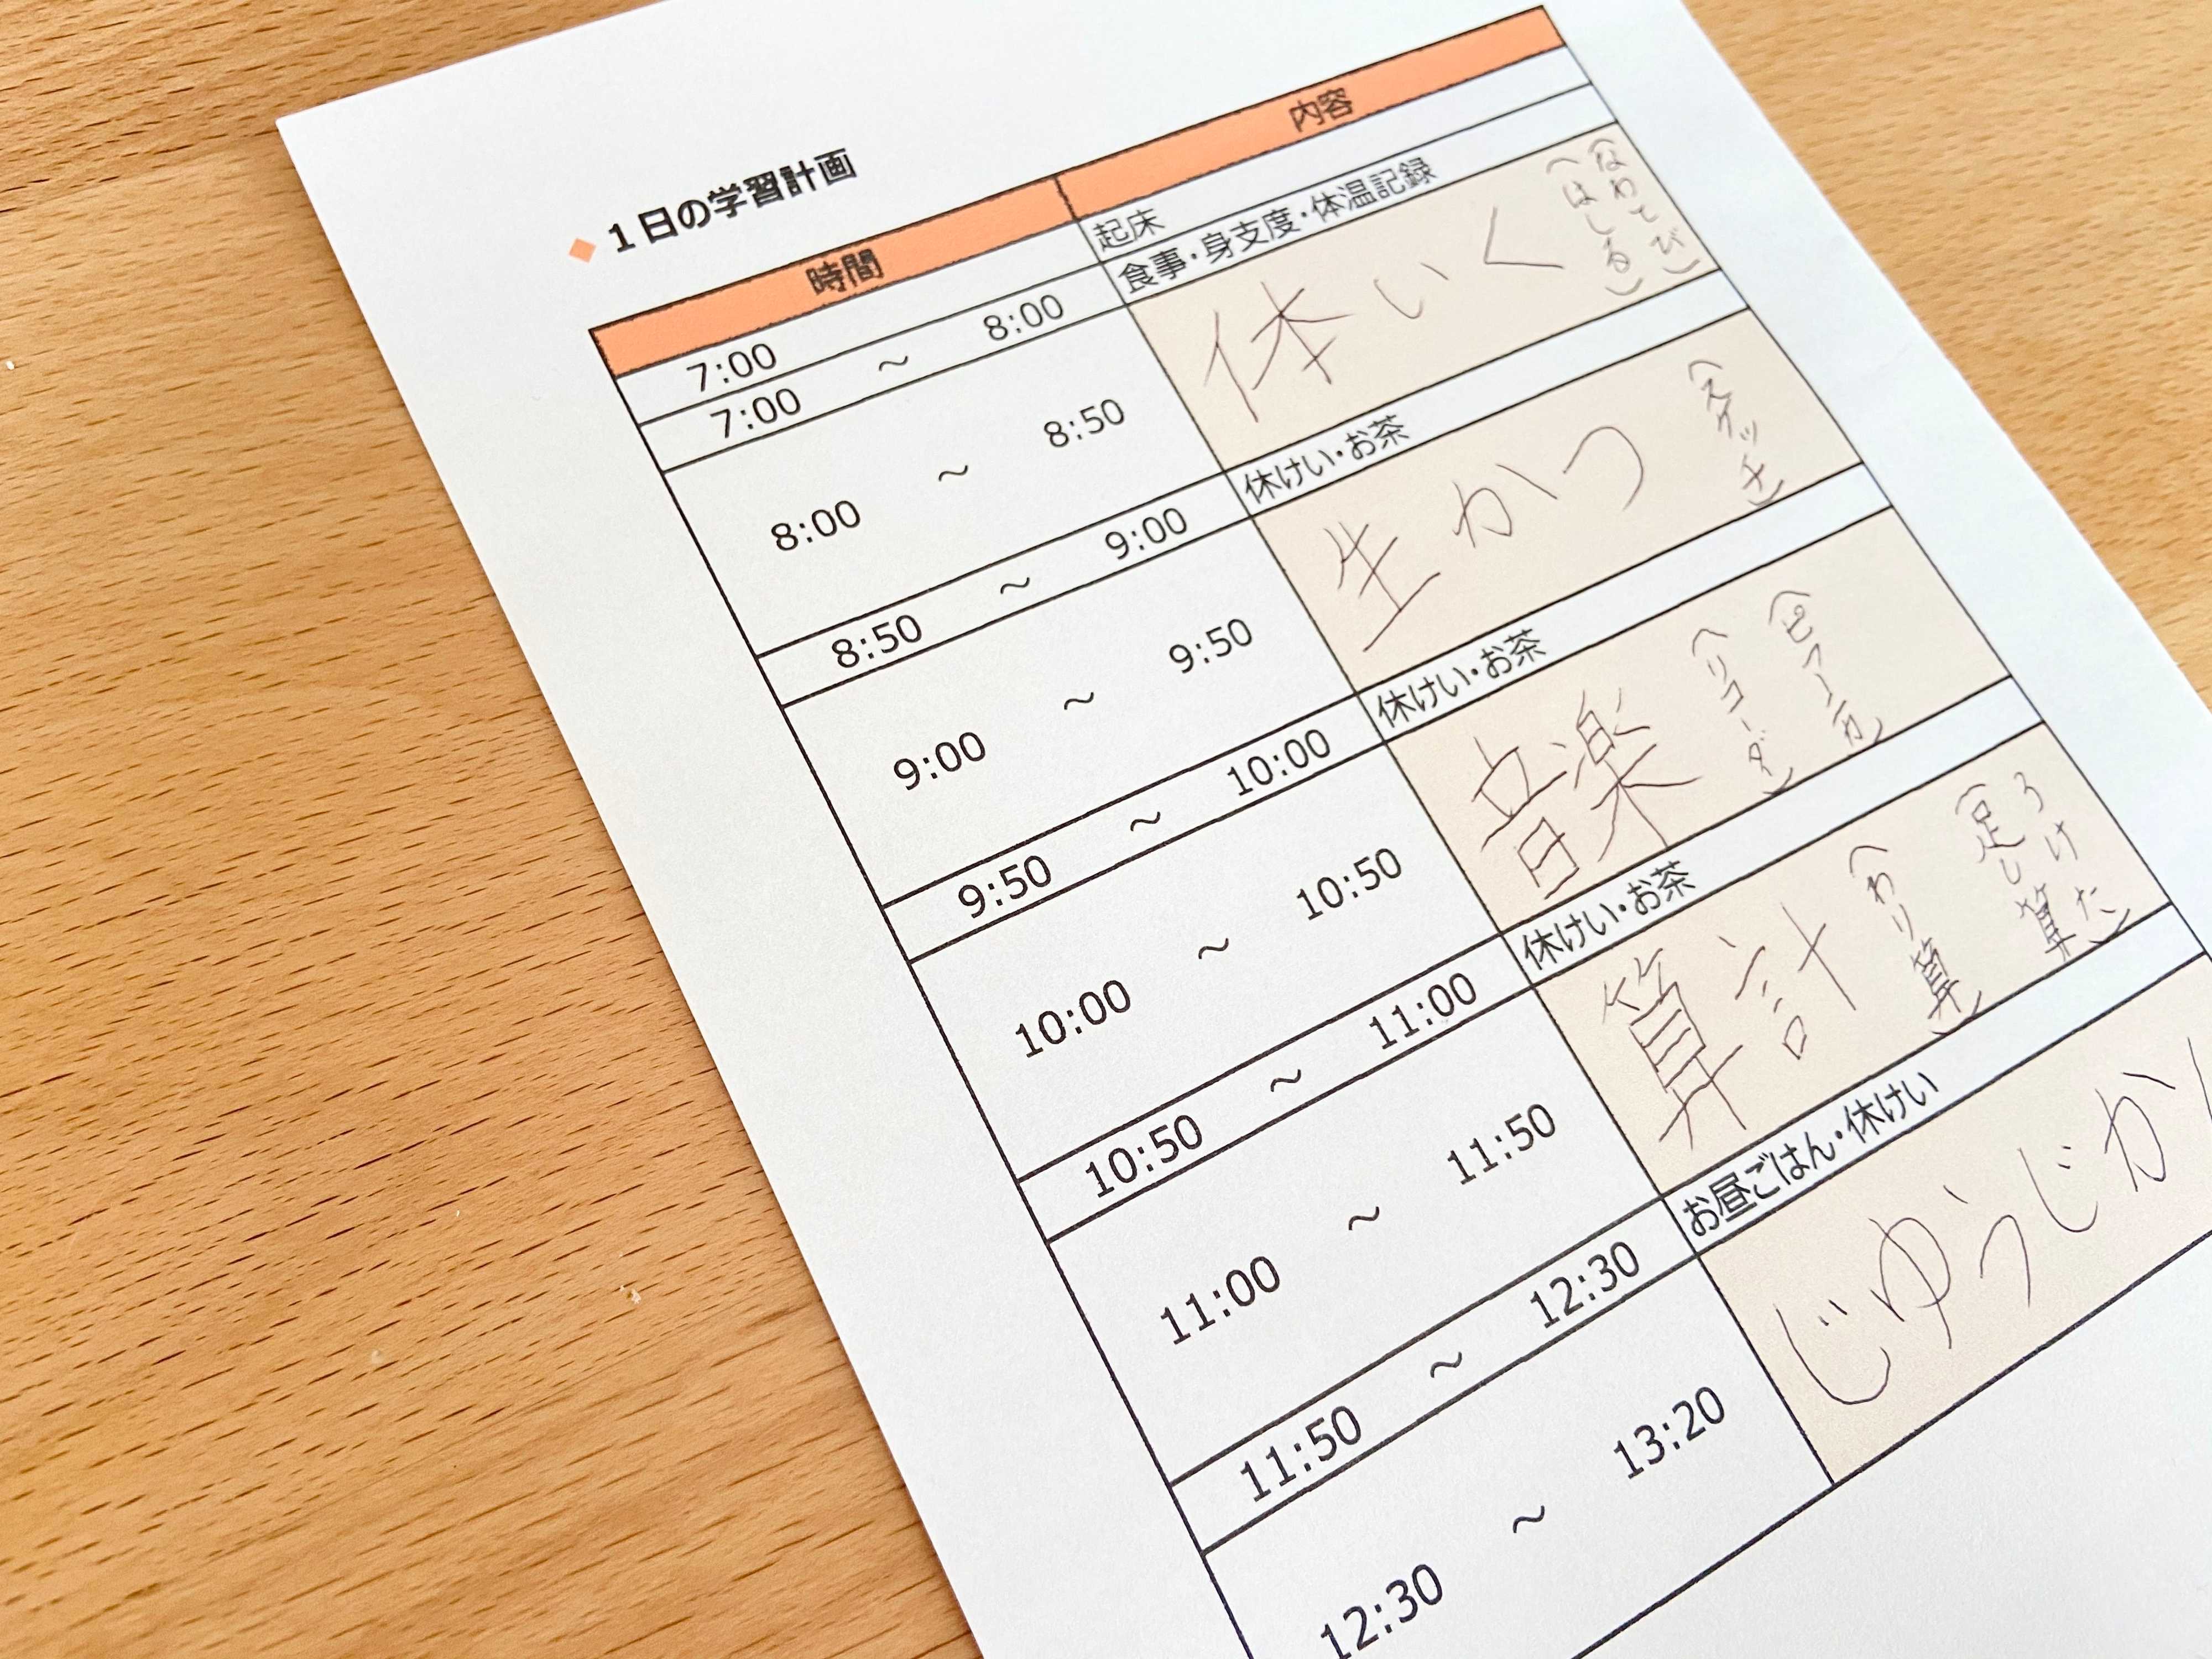 ◆ 1日の学習計画
時間 内容
7:00 起床
7:00 ～ 8:00 食事・身支度・体温記録
8:00 ～ 8:50 体いく (なわとび) (はしる)
8:50 ～ 9:00 休けい・お茶
9:00 ～ 9:50 生かつ (スケッチ)
9:50 ～ 10:00 休けい・お茶
10:00 ～ 10:50 音楽 (ピアニカ) (リコーダ)
10:50 ～ 11:00 休けい・お茶
11:00 ～ 11:50 算計 (足し算 (わり算)
11:50 ～ 12:30 お昼ごはん・休けい
12:30 ～ 13:20 じゆうじか